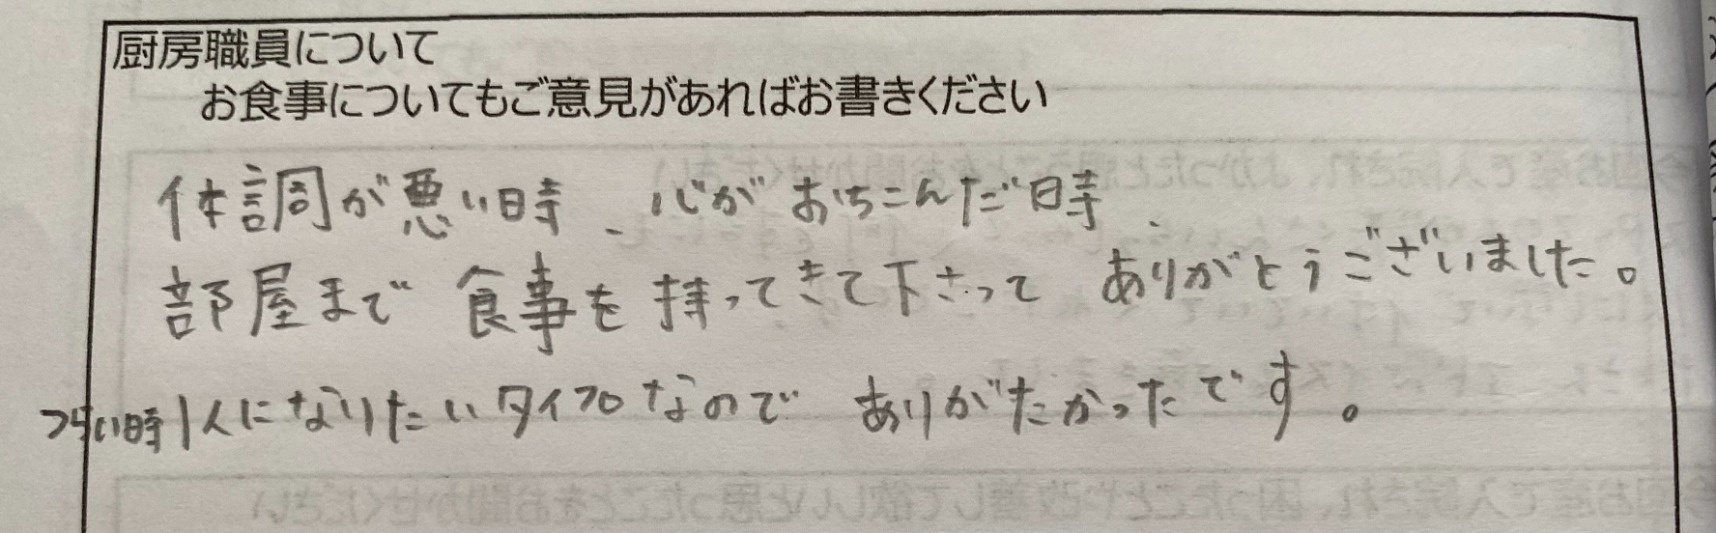 厨房職員について
お食事についてもご意見があればお書きください
体調が悪い時、心がおちこんだ時、
部屋まで食事を持ってきて下さって ありがとうございました。
つらい時1人になりたいタイプなので ありがたかったです。